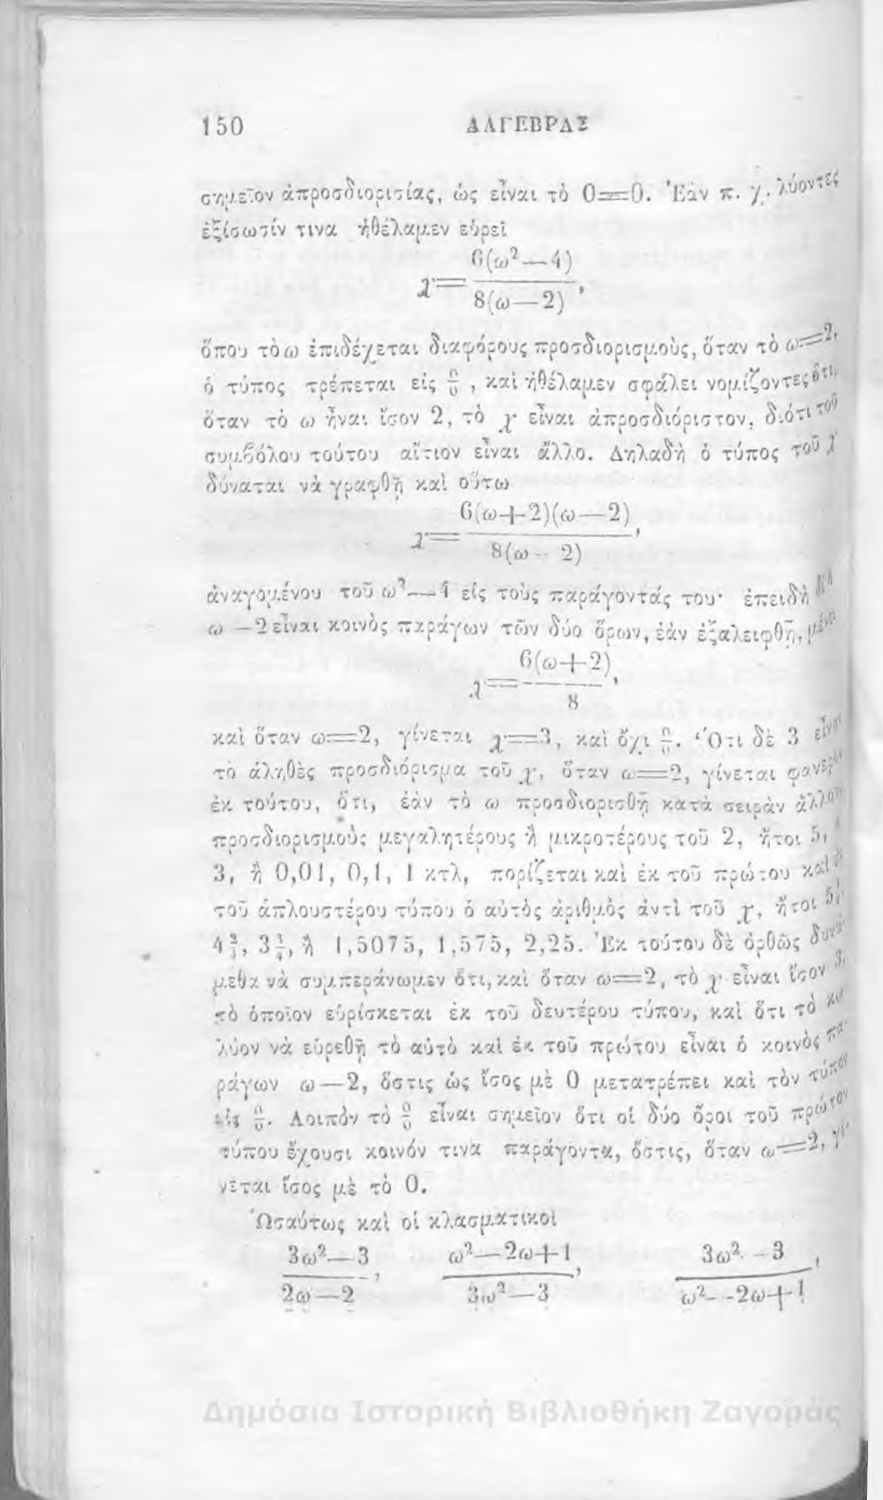 150 ΑΛΓΕΒΡΑΣ
σημεῖον ἀπροσδιορισίας, ὡς εἶναι τὸ 0=0. Ἐὰν π. χ. λύοντες
ἐξίσωσίν τινα ἠθέλαμεν εὑρεῖ
6(ω²—4)
χ=
8(ω—2) ,
ὅπου τὸ ω ἐπιδέχεται διαφόρους προσδιορισμοὺς, ὅταν τὸ ω=2,
ὁ τύπος τρέπεται εἰς 0/0 , καὶ ἠθέλαμεν σφάλει νομίζοντες ὅτι,
ὅταν τὸ ω ἦναι ἴσον 2, τὸ χ εἶναι ἀπροσδιόριστον, διότι τοῦ
συμβόλου τούτου αἴτιον εἶναι ἄλλο. Δηλαδὴ ὁ τύπος τοῦ χ
δύναται νὰ γραφθῇ καὶ οὕτω
6(ω+2)(ω—2)
χ= ,
8(ω—2)
ἀναγομένου τοῦ ω²—4 εἰς τοὺς παράγοντάς του· ἐπειδὴ
ω—2 εἶναι κοινὸς παράγων τῶν δύο ὅρων, ἐὰν ἐξαλειφθῇ,
6(ω+2)
χ= ,
8
καὶ ὅταν ω=2, γίνεται χ=3, καὶ ὄχι 0/0. Ὅτι δὲ 3 εἶναι
τὸ ἀληθὲς προσδιόρισμα τοῦ χ, ὅταν ω=2, γίνεται
ἐκ τούτου, ὅτι, ἐὰν τὸ ω προσδιορισθῇ κατὰ σειρὰν ἄλλους
προσδιορισμοὺς μεγαλητέρους ἢ μικροτέρους τοῦ 2, ἤτοι 5,
3, ἢ 0,01, 0,1, 1 κτλ, πορίζεται καὶ ἐκ τοῦ πρώτου καὶ
τοῦ ἁπλουστέρου τύπου ὁ αὐτὸς ἀριθμὸς ἀντὶ τοῦ χ, ἤτοι
4 , 3 , ἢ 1,5075, 1,575, 2,25. Ἐκ τούτου δὲ ὀρθῶς δυνά
μεθα νὰ συμπεράνωμεν ὅτι, καὶ ὅταν ω=2, τὸ χ εἶναι ἴσον 3,
τὸ ὁποῖον εὑρίσκεται ἐκ τοῦ δευτέρου τύπου, καὶ ὅτι τὸ κω
λύον νὰ εὑρεθῇ τὸ αὐτὸ καὶ ἐκ τοῦ πρώτου εἶναι ὁ κοινὸς πα
ράγων ω—2, ὅστις ὡς ἴσος μὲ 0 μετατρέπει καὶ τὸν τύπον
εἰς 0/0. Λοιπὸν τὸ 0/0 εἶναι σημεῖον ὅτι οἱ δύο ὅροι τοῦ πρώτου
τύπου ἔχουσι κοινόν τινα παράγοντα, ὅστις, ὅταν ω=2, γί
νεται ἴσος μὲ τὸ 0.
Ὡσαύτως καὶ οἱ κλασματικοὶ
3ω²—3 ω²—2ω+1 3ω²—3
, , ,
2ω—2 3ω²—3 ω²—2ω+1
Δημόσια Ιστορική Βιβλιοθήκη Ζαγοράς